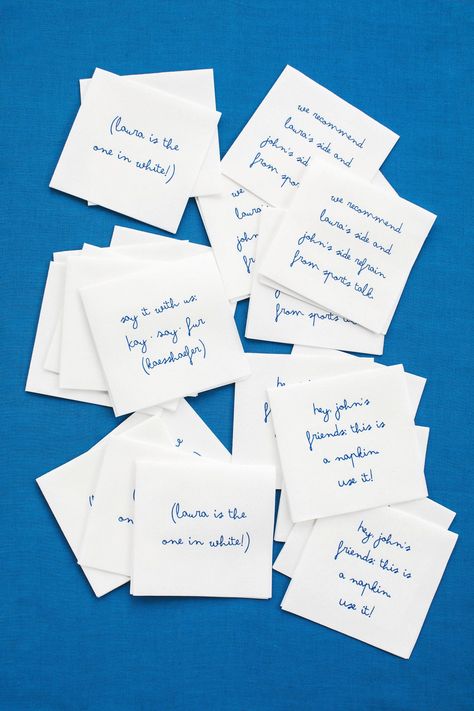 (laura is the
one in white!)
we recommend
laura's side and
john's side
from sports
we
laura
john
from
we recommend
laura's side and
john's side refrain
from sports talk.
from sports talk
say it with us:
kay · say · fur
(kaesshaefer)
hey, john's
friends: this is
a napkin.
use it!
(laura is the
one in white!)
hey, john's
friends: this is
a napkin.
use it!